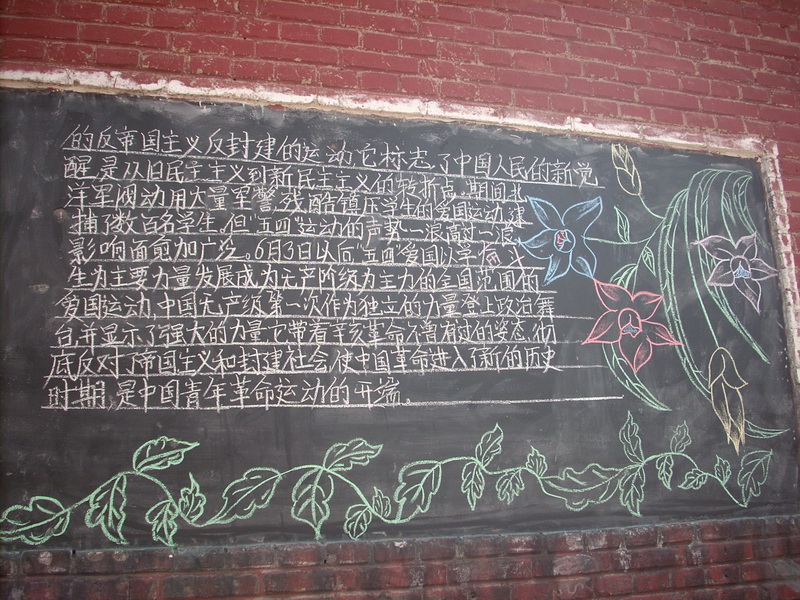 的反帝国主义反封建的运动,它标志了中国人民的新觉
醒,是从旧民主主义到新民主主义的转折点,期间,北
洋军阀动用大量军警,残酷镇压学生的爱国运动,逮
捕了数百名学生,但"五四"运动的声势一浪高过一浪,
影响面愈加广泛。6月3日以后"五四"爱国以学
生为主要力量发展成为无产阶级为主力的全国范围的
爱国运动,中国无产级第一次作为独立的力量登上政治舞
台,并显示了强大的力量,它带着辛亥革命不曾有过的姿态,彻
底反对了帝国主义和封建社会,使中国革命进入了新的历史
时期,是中国青年革命运动的开端。